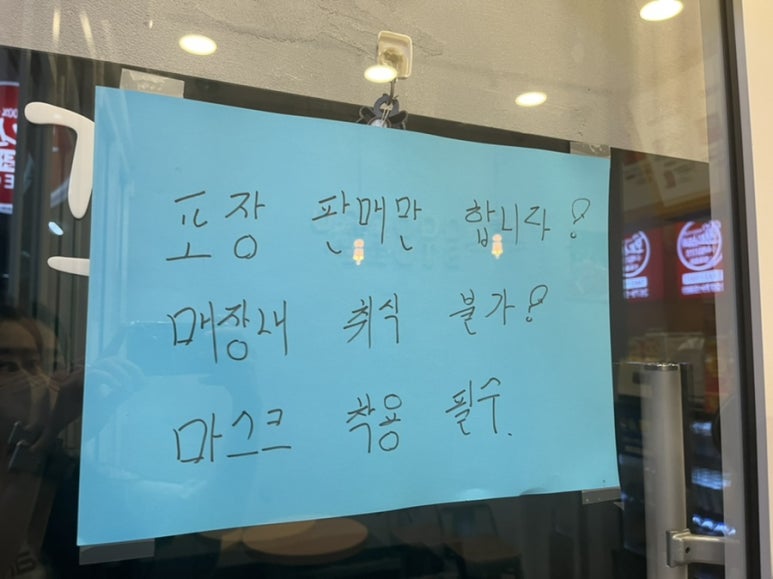 포장 판매만 합니다!
매장내 취식 불가!
마스크 착용 필수.